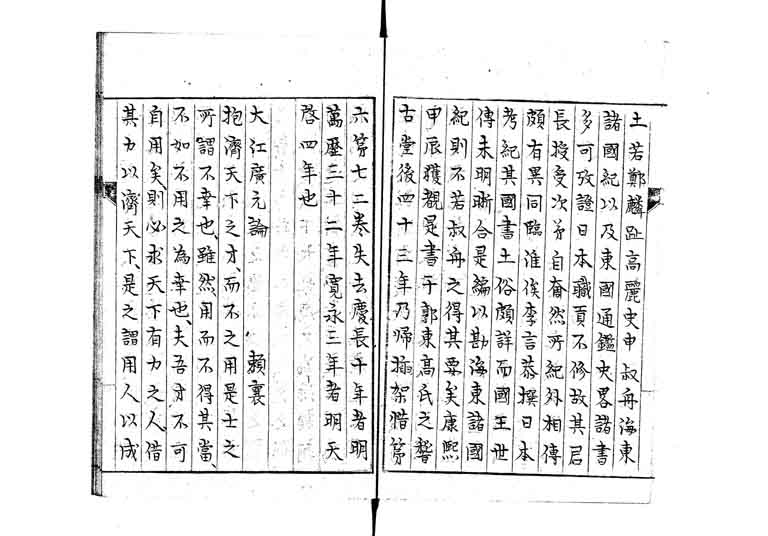 土若鄭麟趾高麗史申叔舟海東
諸國紀以及東國通鑑史畧諸書
多可攷證日本職貢不修故其君
長授受次第自奝然所紀外相傳
頗有異同臨淮侯李言恭撰日本
考紀其國書土俗頗詳而國王世
傳未明晰合是編以勘海東諸國
紀則不若叔舟之得其要矣康熙
甲辰獲觀是書于郭東高氏之
古堂後四十三年乃歸插架惜第
六第七二卷失去慶長十年者明
萬歷三十二年寛永三年者明天
啓四年也
大江廣元論 賴襄
抱濟天下之才而不之用是士之
所謂不幸也、雖然、用而不得其當、
不如不用之為幸也、夫吾才不可
自用矣、則必求天下有力之人、借
其力以濟天下、是之謂用人以成